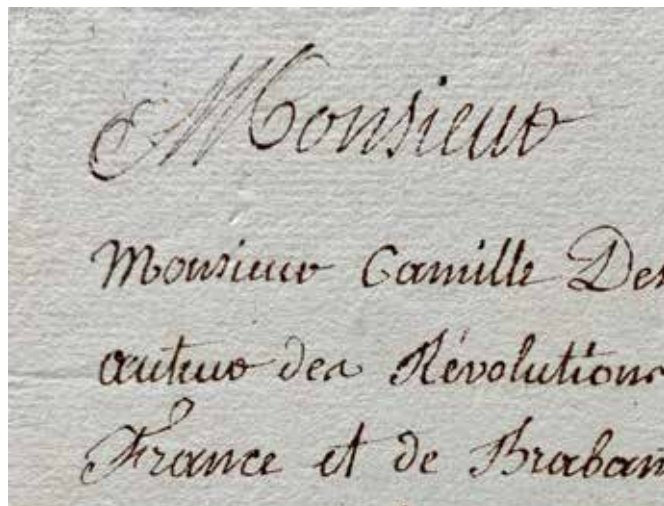 Monsieur
Monsieur Camille Des
auteur des Révolutions
France et de Braban